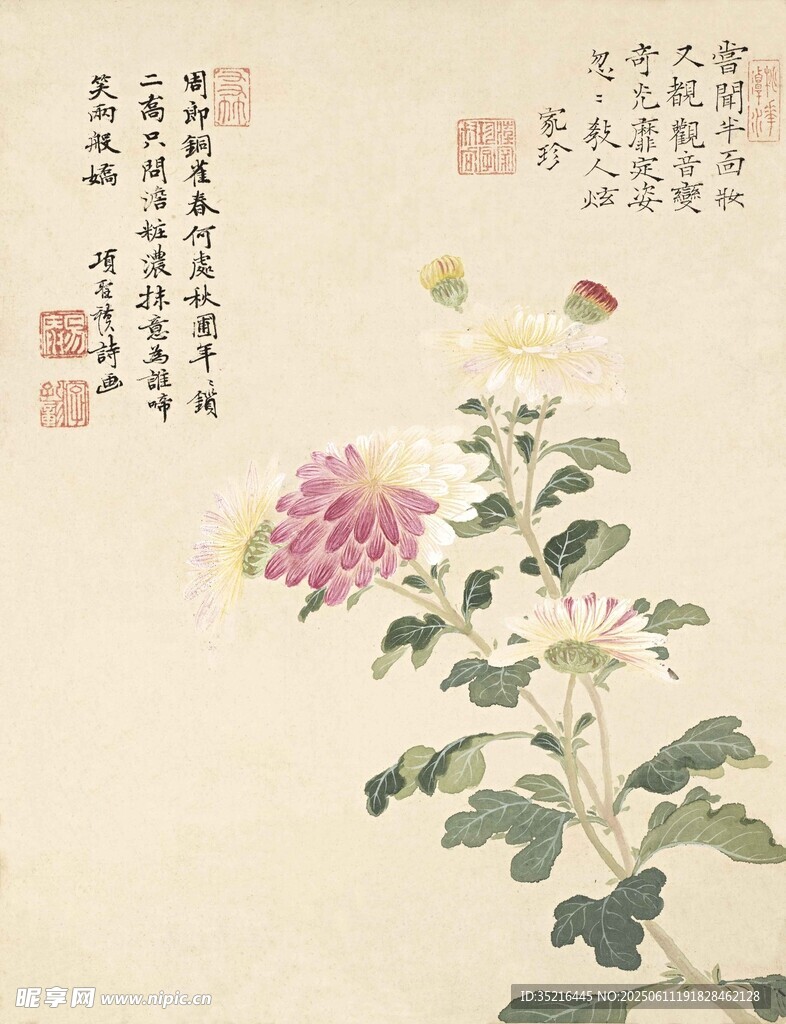 嘗聞半面妝
又覩觀音變
奇光靡定姿
忽〻教人炫
家珍
周郎銅雀春何處秋圃年〻鎖
二喬只問澹粧濃抹意為誰啼
笑兩般嬌
項聖謨詩画
昵享网 www.nipic.cn
ID:35216445 NO:20250611191828462128